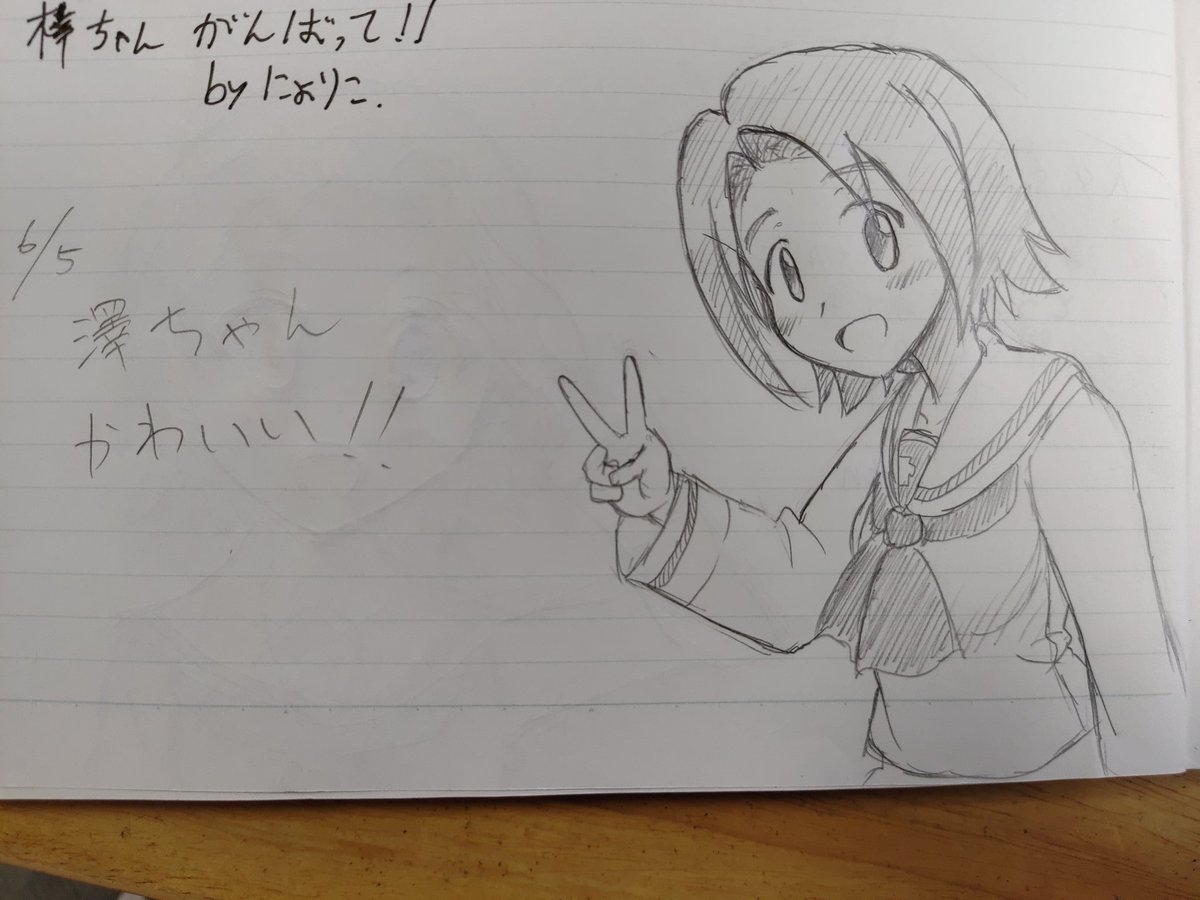 梓ちゃん がんばって!!
by にょりこ.
6/5
澤ちゃん
かわいい!!